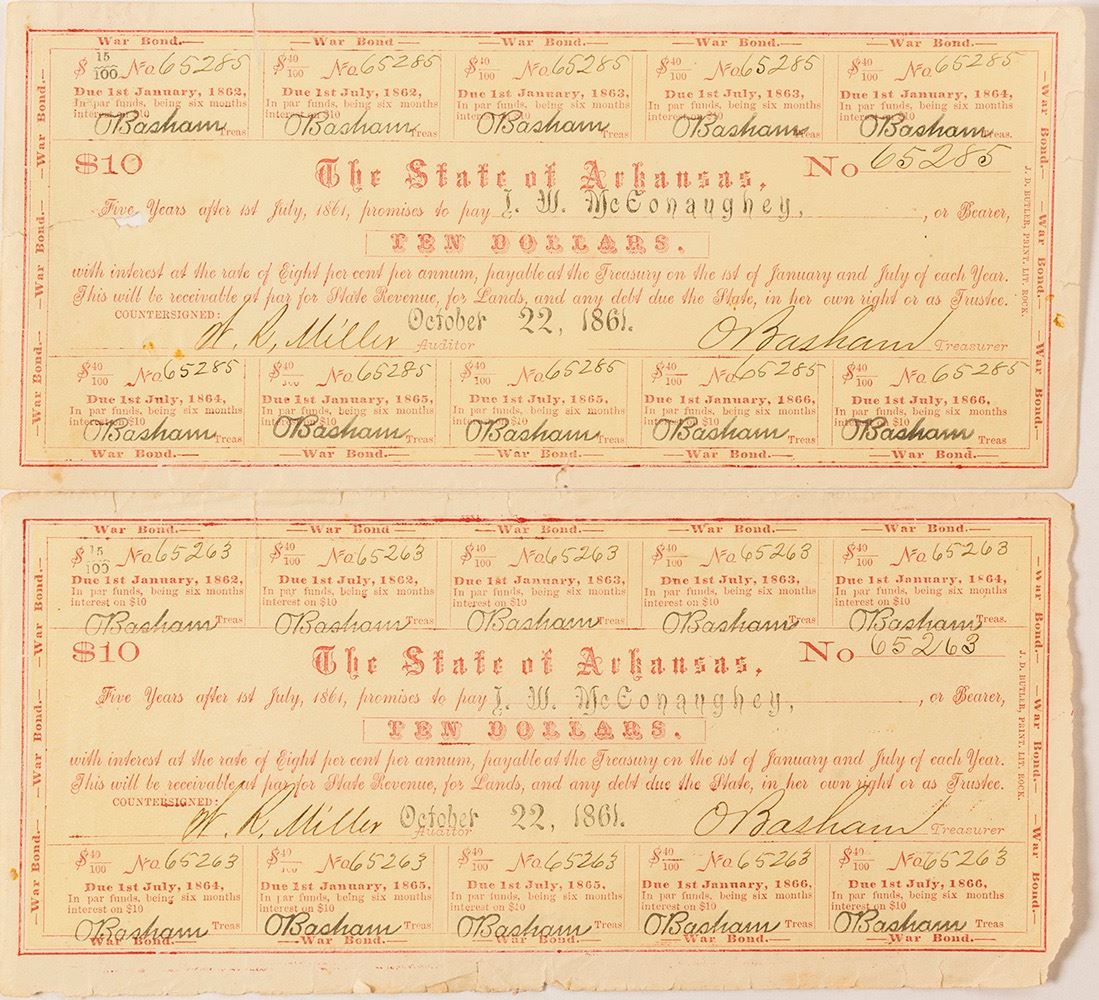 War Bond.— —War Bond— —War Bond.— —War Bond.— —War Bond.—
$ 15/100 No 65285 $ 40/100 No 65285 $ 40/100 No 65285 $ 40/100 No 65285 $ 40/100 No 65285
Due 1st January, 1862, Due 1st July, 1862, Due 1st January, 1863, Due 1st July, 1863, Due 1st January, 1864,
In par funds, being six months In par funds, being six months In par funds, being six months In par funds, being six months In par funds, being six months
interest on $10 interest on $10 interest on $10 interest on $10 interest on $10
O Basham Treas O Basham Treas O Basham Treas O Basham Treas O Basham Treas.
$10 The State of Arkansas, No 65285
Five Years after 1st July, 1861, promises to pay J. W. McConaughey, , or Bearer,
TEN DOLLARS.
with interest at the rate of Eight per cent per annum, payable at the Treasury on the 1st of January and July of each Year.
This will be receivable at par for State Revenue, for Lands, and any debt due the State, in her own right or as Trustee.
COUNTERSIGNED:
W. R. Miller Auditor October 22, 1861. O Basham Treasurer
$ 40/100 No 65285 $ 40/100 No 65285 $ 40/100 No 65285 $ 40/100 No 65285 $ 40/100 No 65285
Due 1st July, 1864, Due 1st January, 1865, Due 1st July, 1865, Due 1st January, 1866, Due 1st July, 1866,
In par funds, being six months In par funds, being six months In par funds, being six months In par funds, being six months In par funds, being six months
interest on $10 interest on $10 interest on $10 interest on $10 interest on $10
O Basham Treas O Basham Treas O Basham Treas O Basham Treas O Basham Treas
War Bond.— —War Bond.— —War Bond.— —War Bond.— —War Bond.—
—War Bond.— —War Bond.— —War Bond.—
—War Bond.— —War Bond.— —War Bond.—
J. D. BUTLER, PRINT. LIT. ROCK.
War Bond.— —War Bond— —War Bond.— —War Bond.— —War Bond.—
$ 15/100 No 65263 $ 40/100 No 65263 $ 40/100 No 65263 $ 40/100 No 65263 $ 40/100 No 65263
Due 1st January, 1862, Due 1st July, 1862, Due 1st January, 1863, Due 1st July, 1863, Due 1st January, 1864,
In par funds, being six months In par funds, being six months In par funds, being six months In par funds, being six months In par funds, being six months
interest on $10 interest on $10 interest on $10 interest on $10 interest on $10
O Basham Treas O Basham Treas O Basham Treas O Basham Treas O Basham Treas.
$10 The State of Arkansas, No 65263
Five Years after 1st July, 1861, promises to pay J. W. McConaughey, , or Bearer,
TEN DOLLARS.
with interest at the rate of Eight per cent per annum, payable at the Treasury on the 1st of January and July of each Year.
This will be receivable at par for State Revenue, for Lands, and any debt due the State, in her own right or as Trustee.
COUNTERSIGNED:
W. R. Miller Auditor October 22, 1861. O Basham Treasurer
$ 40/100 No 65263 $ 40/100 No 65263 $ 40/100 No 65263 $ 40/100 No 65263 $ 40/100 No 65263
Due 1st July, 1864, Due 1st January, 1865, Due 1st July, 1865, Due 1st January, 1866, Due 1st July, 1866,
In par funds, being six months In par funds, being six months In par funds, being six months In par funds, being six months In par funds, being six months
interest on $10 interest on $10 interest on $10 interest on $10 interest on $10
O Basham Treas O Basham Treas O Basham Treas O Basham Treas O Basham Treas
War Bond.— —War Bond.— —War Bond.— —War Bond.— —War Bond.—
—War Bond.— —War Bond.— —War Bond.—
—War Bond.— —War Bond.— —War Bond.—
J. D. BUTLER, PRINT. LIT. ROCK.